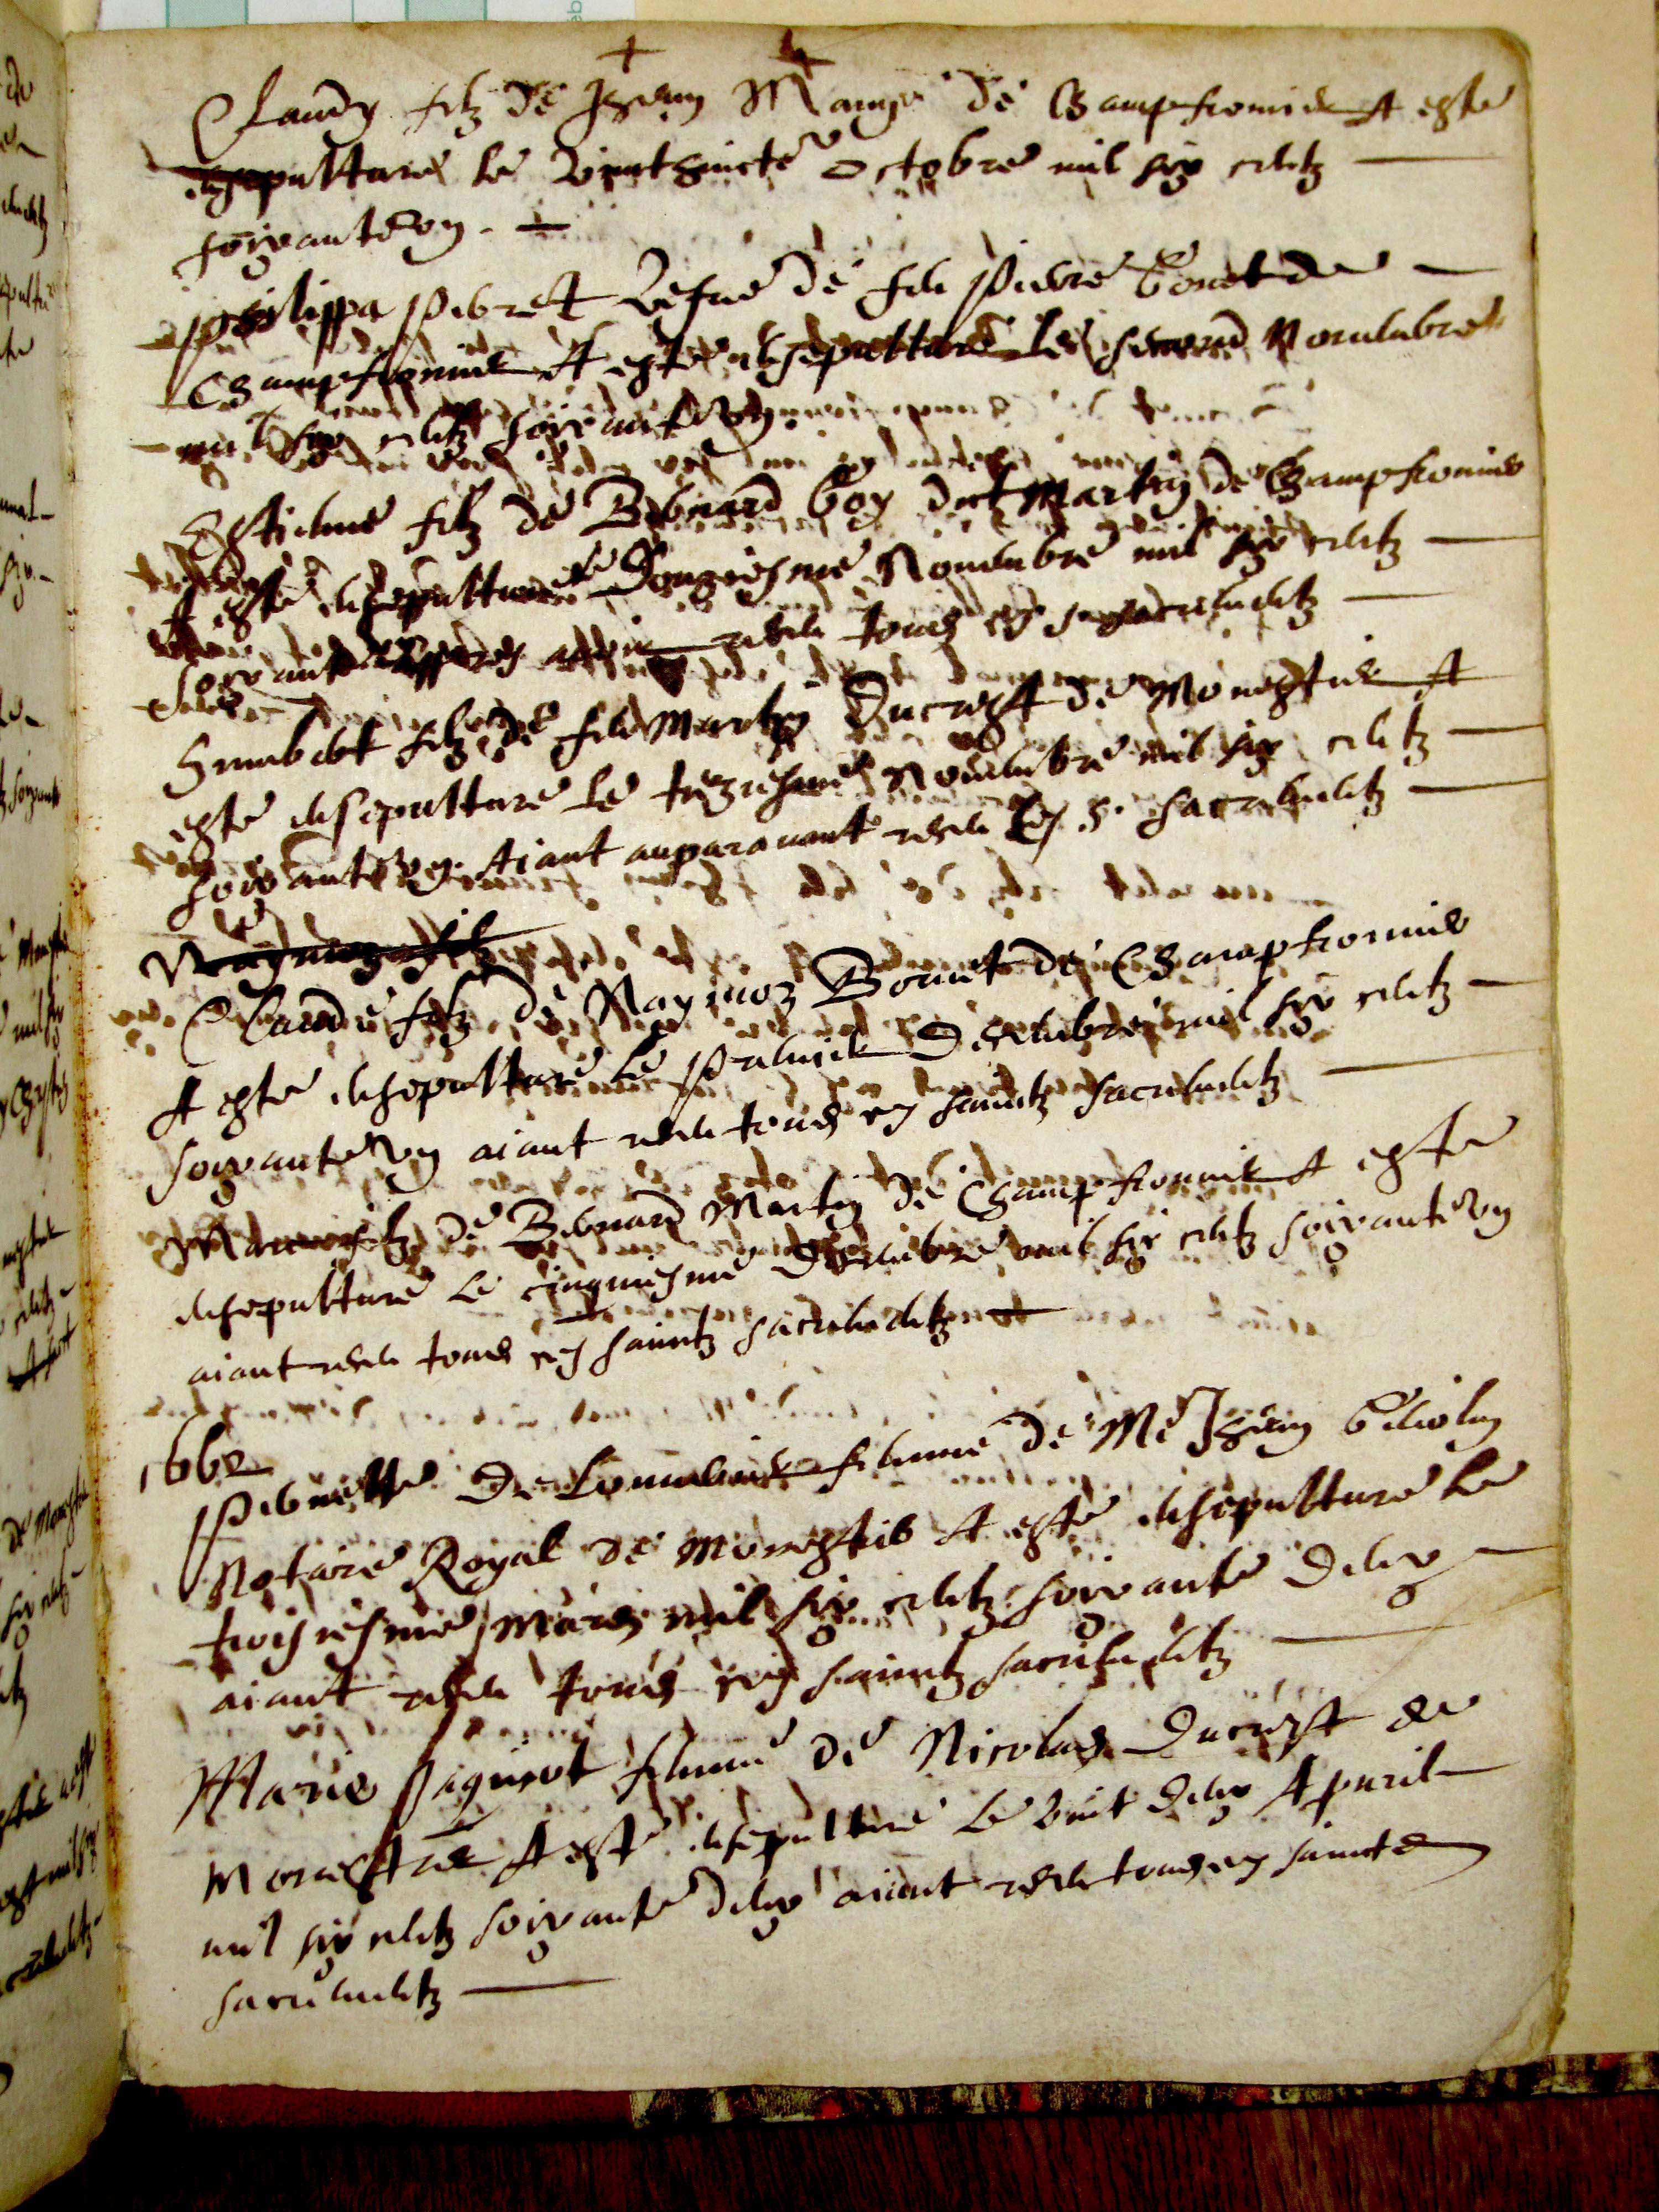 Claudy filz de Jehan Mange de Champfromier A este
ensepulturé le vingthuicte octobre mil six centz
soixante ung.
philippa pierret vefue de feu pierre Bornet de
Champfromier A este ensepulturé le second Nouembre
mil six centz soixante ung.
Estienne filz de Bernard Goy dict Martin de Champfromier
A este ensepulturé le Nouembre mil six centz
soixante receu tous ses sacrementz
Humbert filz de feu Martin Ducrest de Monestier A
este ensepulturé le trezeiesme Nouembre mil six centz
soixante ung. Aiant auparauant receu les S. sacrementz
Claude filz de Raymoz Bornet de Champfromier
A este ensepulturé le premier Decembre mil six centz
soixante ung aiant receu tous ses sainctz sacrementz
filz de Bernard Martin de Champfromier A este
ensepulturé le cinquiesme Decembre mil six centz soixante ung
aiant receu tous ses sainctz sacrementz
1662
Pernette De femme de Me Jehan
Notaire Royal de Monestier A este ensepulturé le
troisiesme Mars mil six centz soixante deux
aiant receu tous ses sainctz sacrementz
Marie femme de Nicolas Ducrest de
Monestier A este ensepulturé le vint deux Apuril
mil six centz soixante deux aiant receu tous ses saincts
sacrementz